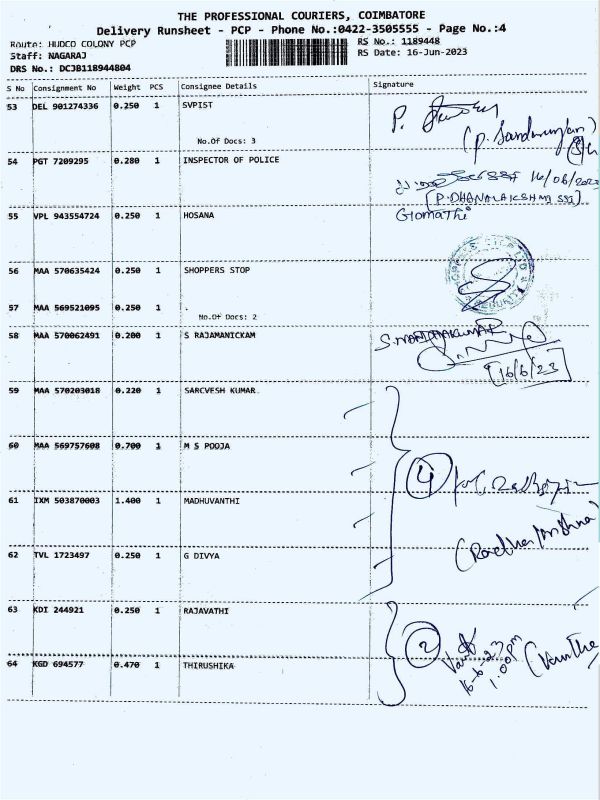 THE PROFESSIONAL COURIERS, COIMBATORE
Delivery Runsheet - PCP - Phone No.:0422-3505555 - Page No.:4
Route: HUDCO COLONY PCP RS No.: 1189448
Staff: NAGARAJ RS Date: 16-Jun-2023
DRS No.: DCJB118944804
S No Consignment No Weight PCS Consignee Details Signature
53 DEL 901274336 0.250 1 SVPIST
P.
No.Of Docs: 3
54 PGT 7209295 0.280 1 INSPECTOR OF POLICE
16/06/2023
(P.DHANALAKSHMI SSI)
55 VPL 943554724 0.250 1 HOSANA Gomathi
56 MAA 570635424 0.250 1 SHOPPERS STOP
57 MAA 569521095 0.250 1 .
No.Of Docs: 2
58 MAA 570062491 0.200 1 S RAJAMANICKAM
16/6/23
59 MAA 570203018 0.220 1 SARCVESH KUMAR
60 MAA 569757608 0.700 1 M S POOJA
4
61 IXM 503870003 1.400 1 MADHUVANTHI
(Radhakrishna)
62 TVL 1723497 0.250 1 G DIVYA
63 KDI 244921 0.250 1 RAJAVATHI
2
16-6-23
1.00pm
64 KGD 694577 0.470 1 THIRUSHIKA